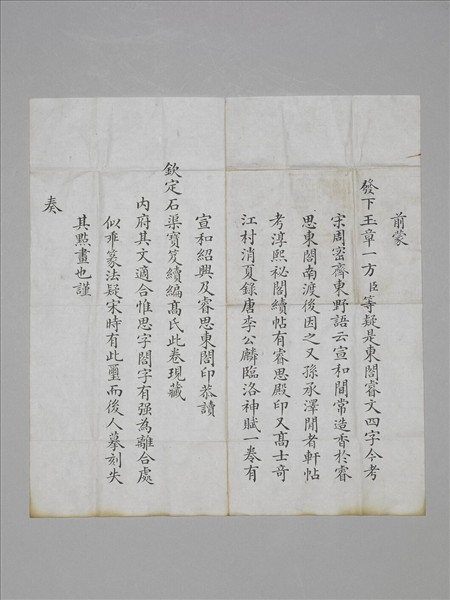 前蒙
發下玉章一方臣等疑是東閤睿文四字今考
宋周密齊東野語云宣和間常造香於睿
思東閤南渡後因之又孫承澤閒者軒帖
考淳熙秘閣續帖有睿思殿印又髙士奇
江村消夏錄唐李公麟臨洛神賦一卷有
宣和紹興及睿思東閤印恭讀
欽定石渠寶笈續編髙氏此卷現藏
內府其文適合惟思字閤字有强為離合處
似乖篆法疑宋時有此璽而後人摹刻失
其點畫也謹
奏